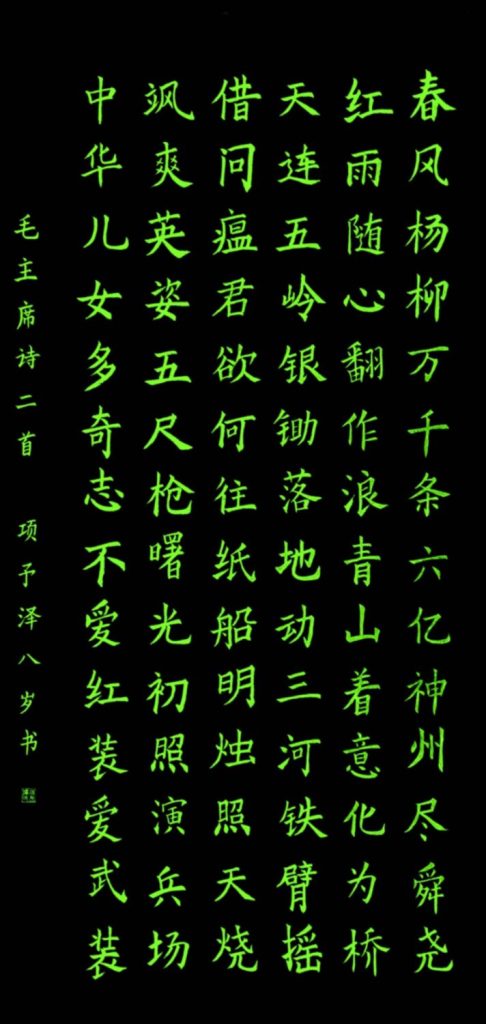 春风杨柳万千条六亿神州尽舜尧
红雨随心翻作浪青山着意化为桥
天连五岭银锄落地动三河铁臂摇
借问瘟君欲何往纸船明烛照天烧
飒爽英姿五尺枪曙光初照演兵场
中华儿女多奇志不爱红装爱武装
毛主席诗二首 项予泽八岁书